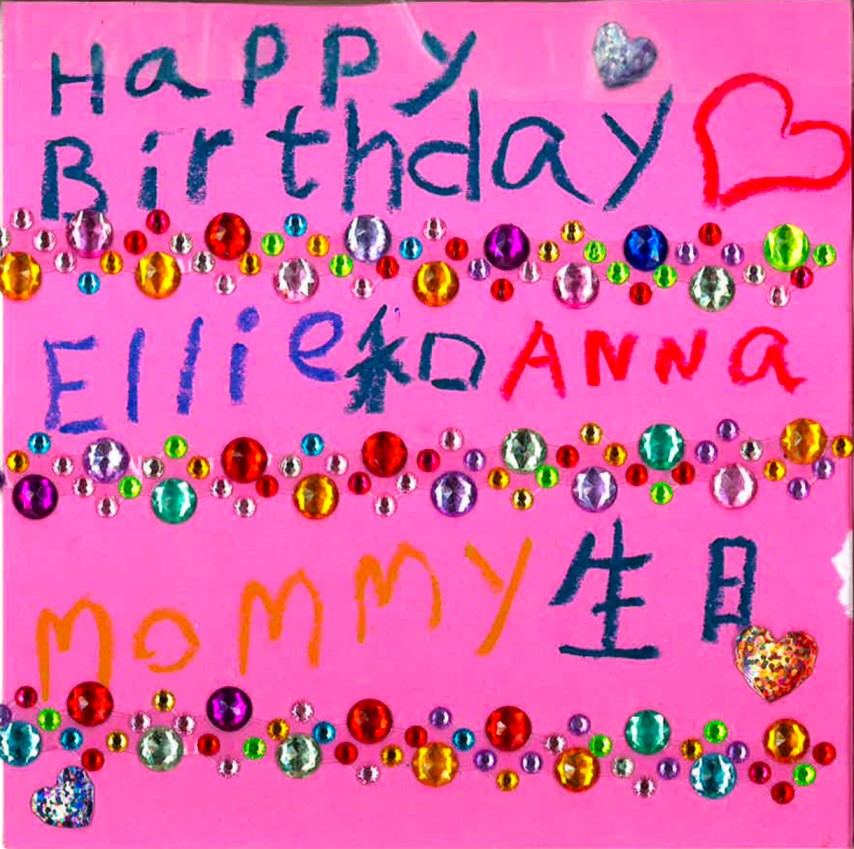 Happy
Birthday
Ellie和ANNa
MOMMY生日